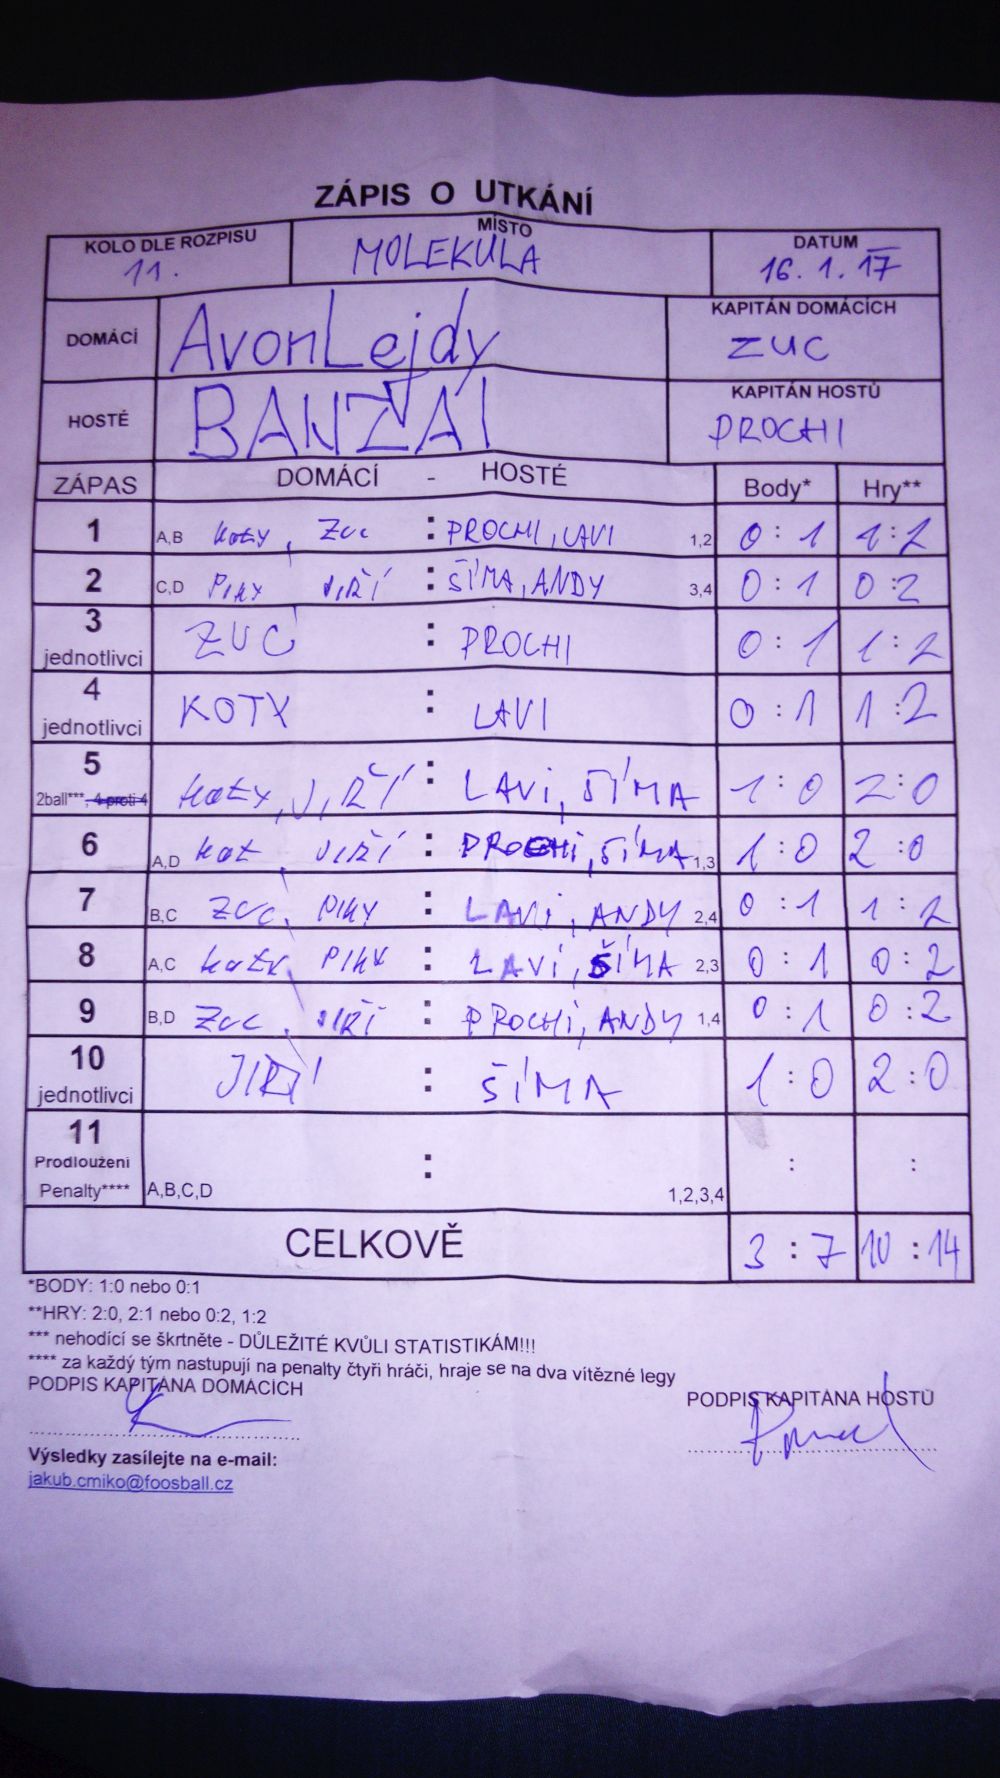 ZÁPIS O UTKÁNÍ
KOLO DLE ROZPISU MÍSTO DATUM
11. MOLEKULA 16.1.17
DOMÁCÍ AvonLejdy KAPITÁN DOMÁCÍCH
ZUC
HOSTÉ BANZAI KAPITÁN HOSTŮ
PROCHI
ZÁPAS DOMÁCÍ - HOSTÉ Body* Hry**
1 A,B Koty, Zuc : PROCHI, LAVI 1,2 0:1 1:2
2 C,D PIKY JIŘÍ : ŠÍMA, ANDY 3,4 0:1 0:2
3 jednotlivci ZUC : PROCHI 0:1 1:2
4 jednotlivci KOTY : LAVI 0:1 1:2
5 2ball***, 4 proti 4 Koty, JIŘÍ : LAVI, ŠÍMA 1:0 2:0
6 A,D Kot, JIŘÍ : PROCHI, ŠÍMA 1,3 1:0 2:0
7 B,C ZUC, PIKY : LAVI, ANDY 2,4 0:1 1:2
8 A,C Koty, PIKY : LAVI, ŠÍMA 2,3 0:1 0:2
9 B,D ZUC, JIŘÍ : PROCHI, ANDY 1,4 0:1 0:2
10 jednotlivci JIŘÍ : ŠÍMA 1:0 2:0
11 Prodloužení : : :
Penalty**** A,B,C,D 1,2,3,4
CELKOVĚ 3:7 10:14
*BODY: 1:0 nebo 0:1
**HRY: 2:0, 2:1 nebo 0:2, 1:2
*** nehodící se škrtněte - DŮLEŽITÉ KVŮLI STATISTIKÁM!!!
**** za každý tým nastupují na penalty čtyři hráči, hraje se na dva vítězné legy
PODPIS KAPITÁNA DOMÁCÍCH PODPIS KAPITÁNA HOSTŮ
Výsledky zasílejte na e-mail:
jakub.cmiko@foosball.cz